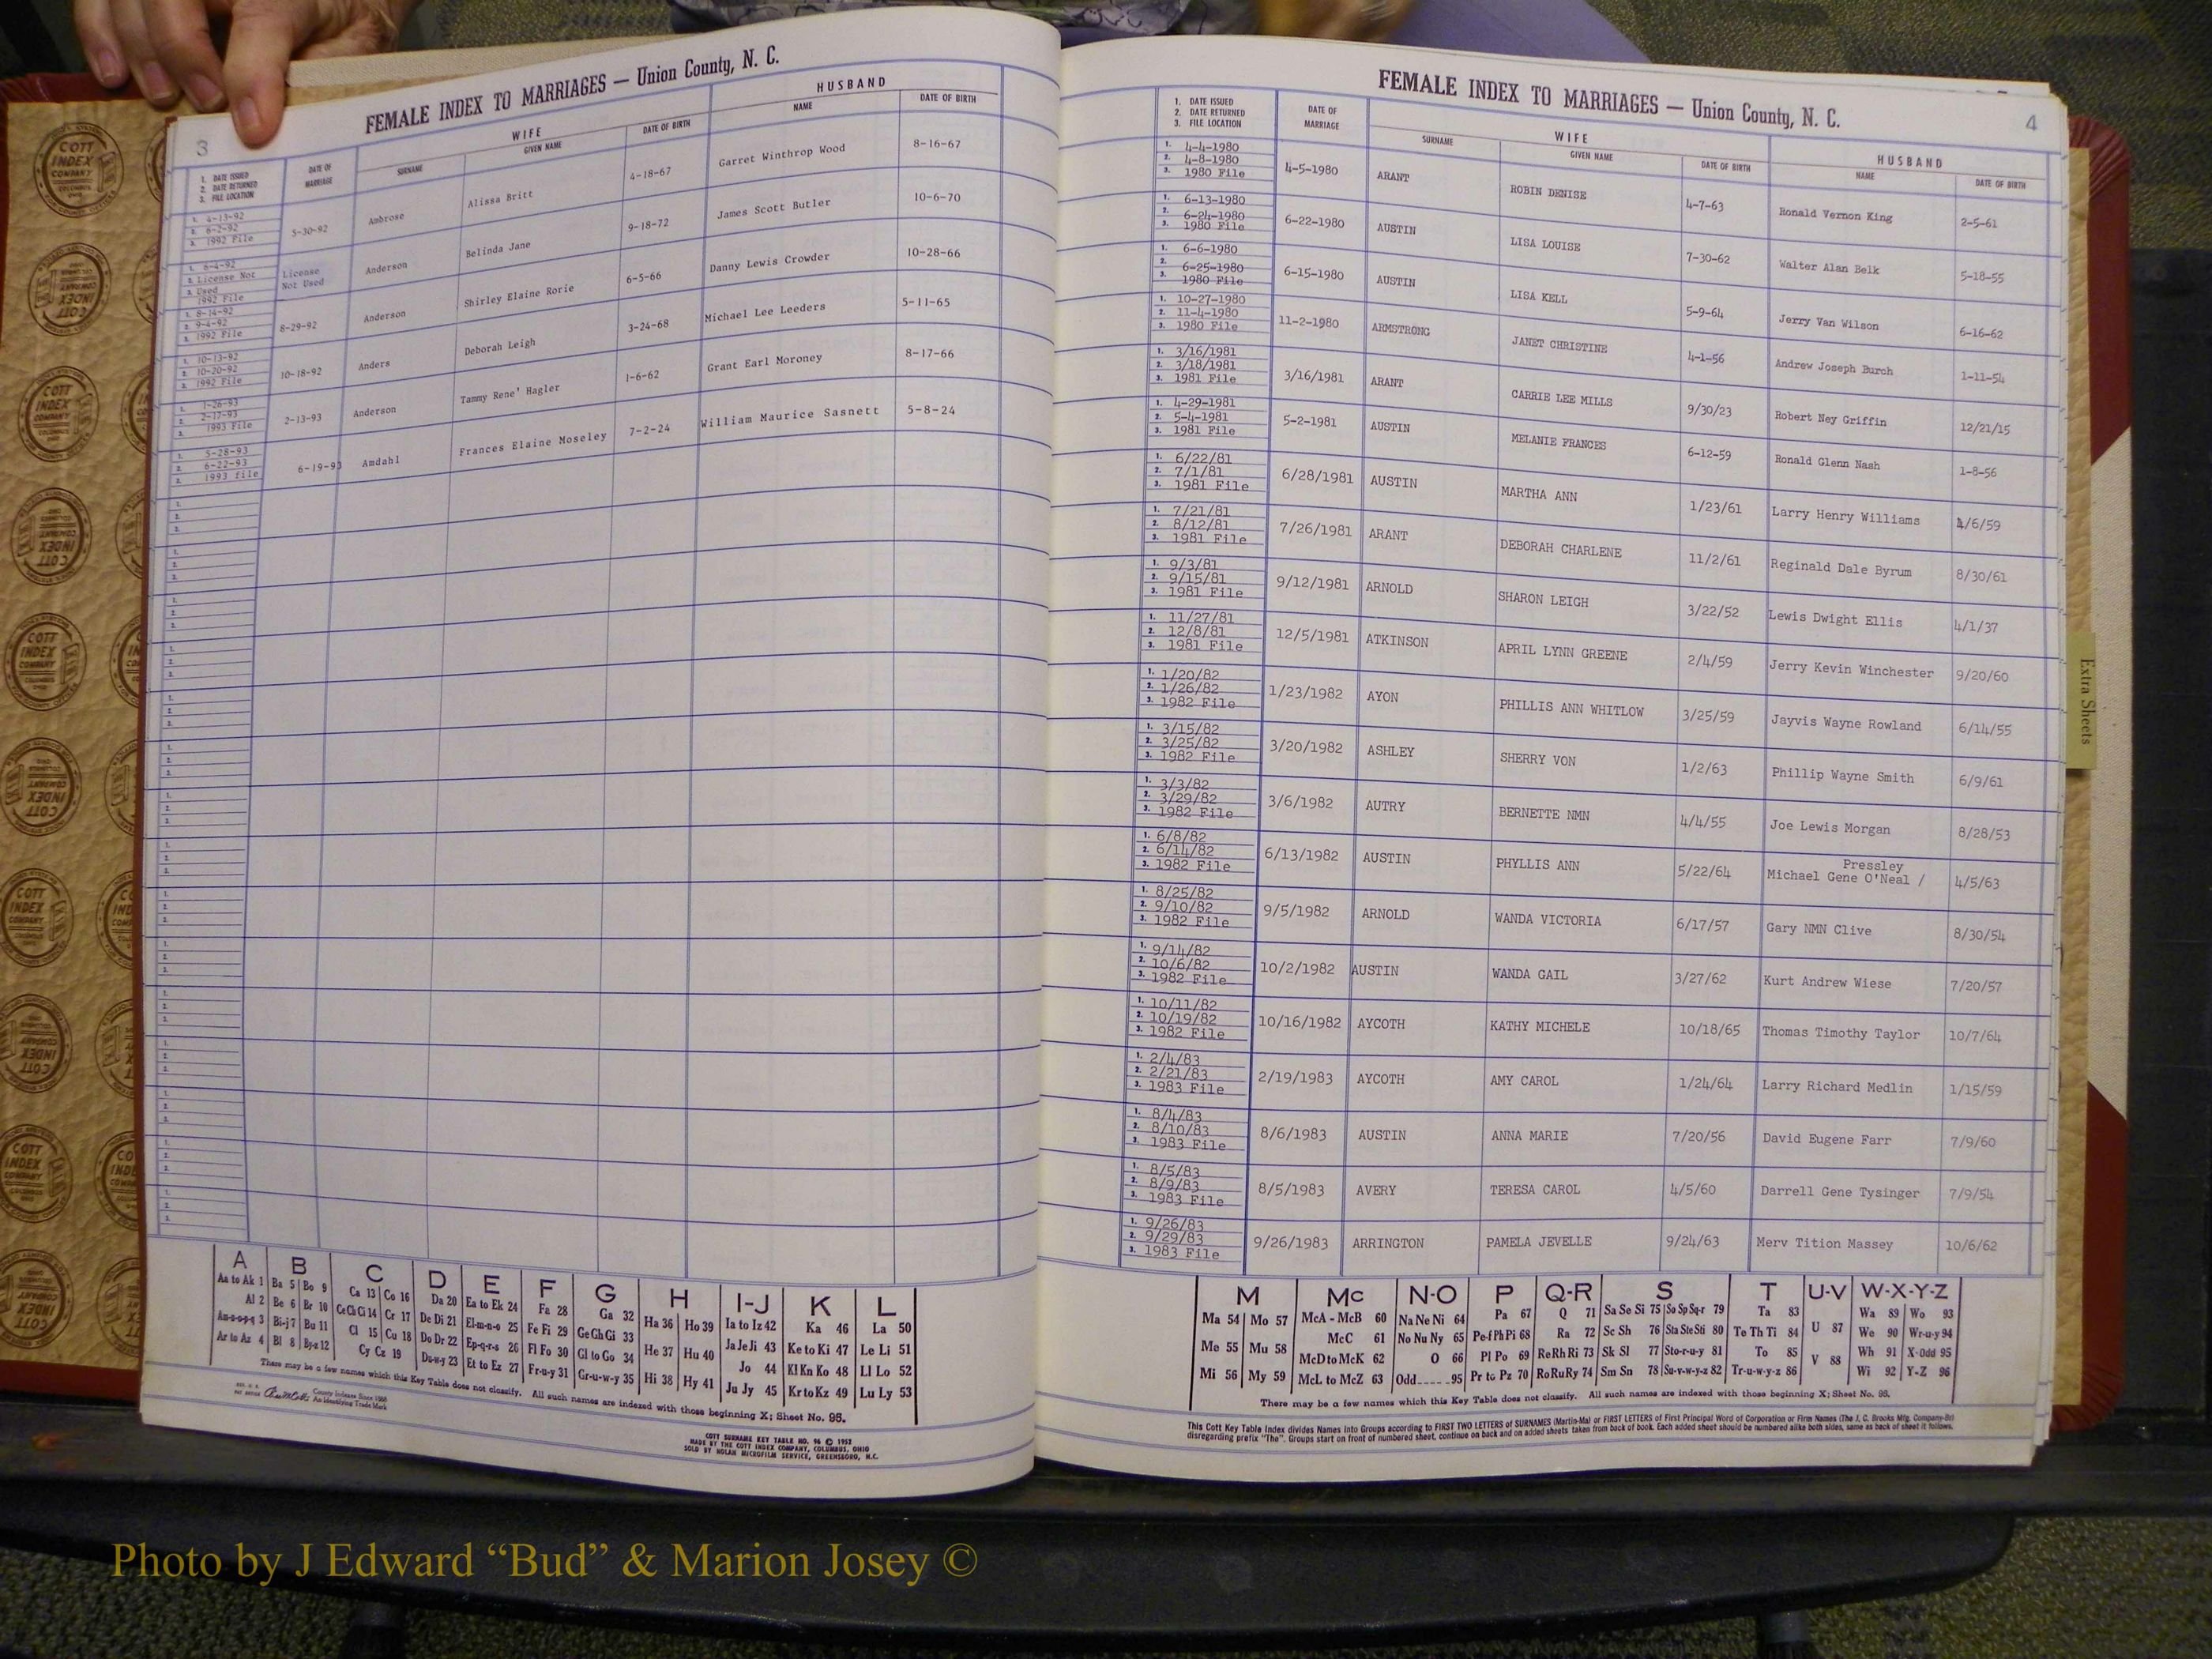 3
FEMALE INDEX TO MARRIAGES — Union County, N. C.
1. DATE ISSUED
2. DATE RETURNED
3. FILE LOCATION
DATE OF MARRIAGE
WIFE
SURNAME GIVEN NAME DATE OF BIRTH
HUSBAND
NAME DATE OF BIRTH
1. 4-13-92
2. 6-2-92
3. 1992 File
5-30-92 Ambrose Alissa Britt 4-18-67 Garret Winthrop Wood 8-16-67
1. 6-4-92
2. License Not
3. Used
1992 File
License Not Used Anderson Belinda Jane 9-18-72 James Scott Butler 10-6-70
1. 8-14-92
2. 9-4-92
3. 1992 File
8-29-92 Anderson Shirley Elaine Rorie 6-5-66 Danny Lewis Crowder 10-28-66
1. 10-13-92
2. 10-20-92
3. 1992 File
10-18-92 Anders Deborah Leigh 3-24-68 Michael Lee Leeders 5-11-65
1. 1-26-93
2. 2-17-93
3. 1993 File
2-13-93 Anderson Tammy Rene' Hagler 1-6-62 Grant Earl Moroney 8-17-66
1. 5-28-93
2. 6-22-93
3. 1993 file
6-19-93 Amdahl Frances Elaine Moseley 7-2-24 William Maurice Sasnett 5-8-24
A
Aa to Ak 1
Al 2
Am-n-o-p-q 3
Ar to Az 4
B
Ba 5 Bo 9
Be 6 Br 10
Bi-j 7 Bu 11
Bl 8 By-z 12
C
Ca 13 Co 16
Ce Ch Ci 14 Cr 17
Cl 15 Cu 18
Cy Cz 19
D
Da 20
De Di 21
Do Dr 22
Du-w-y 23
E
Ea to Ek 24
El-m-n-o 25
Ep-q-r-s 26
Et to Ez 27
F
Fa 28
Fe Fi 29
Fl Fo 30
Fr-u-y 31
G
Ga 32
Ge Gh Gi 33
Gl to Go 34
Gr-u-w-y 35
H
Ha 36 Ho 39
He 37 Hu 40
Hi 38 Hy 41
I-J
Ia to Iz 42
Ja Je Ji 43
Jo 44
Ju Jy 45
K
Ka 46
Ke to Ki 47
Kl Kn Ko 48
Kr to Kz 49
L
La 50
Le Li 51
Ll Lo 52
Lu Ly 53
There may be a few names which this Key Table does not classify. All such names are indexed with those beginning X; Sheet No. 95.
County Indexes Since 1888
An Identifying Trade Mark
COTT SURNAME KEY TABLE NO. 96 © 1952
MADE BY THE COTT INDEX COMPANY, COLUMBUS, OHIO
SOLD BY NOLAN MICROFILM SERVICE, GREENSBORO, N.C.
FEMALE INDEX TO MARRIAGES — Union County, N. C.
4
1. DATE ISSUED
2. DATE RETURNED
3. FILE LOCATION
DATE OF MARRIAGE
WIFE
SURNAME GIVEN NAME DATE OF BIRTH
HUSBAND
NAME DATE OF BIRTH
1. 4-4-1980
2. 4-8-1980
3. 1980 File
4-5-1980 ARANT ROBIN DENISE 4-7-63 Ronald Vernon King 2-5-61
1. 6-13-1980
2. 6-24-1980
3. 1980 File
6-22-1980 AUSTIN LISA LOUISE 7-30-62 Walter Alan Belk 5-18-55
1. 6-6-1980
2. 6-25-1980
3. 1980 File
6-15-1980 AUSTIN LISA KELL 5-9-64 Jerry Van Wilson 6-16-62
1. 10-27-1980
2. 11-4-1980
3. 1980 File
11-2-1980 ARMSTRONG JANET CHRISTINE 4-1-56 Andrew Joseph Burch 1-11-54
1. 3/16/1981
2. 3/18/1981
3. 1981 File
3/16/1981 ARANT CARRIE LEE MILLS 9/30/23 Robert Ney Griffin 12/21/15
1. 4-29-1981
2. 5-4-1981
3. 1981 File
5-2-1981 AUSTIN MELANIE FRANCES 6-12-59 Ronald Glenn Nash 1-8-56
1. 6/22/81
2. 7/1/81
3. 1981 File
6/28/1981 AUSTIN MARTHA ANN 1/23/61 Larry Henry Williams 4/6/59
1. 7/21/81
2. 8/12/81
3. 1981 File
7/26/1981 ARANT DEBORAH CHARLENE 11/2/61 Reginald Dale Byrum 8/30/61
1. 9/3/81
2. 9/15/81
3. 1981 File
9/12/1981 ARNOLD SHARON LEIGH 3/22/52 Lewis Dwight Ellis 4/1/37
1. 11/27/81
2. 12/8/81
3. 1981 File
12/5/1981 ATKINSON APRIL LYNN GREENE 2/4/59 Jerry Kevin Winchester 9/20/60
1. 1/20/82
2. 1/26/82
3. 1982 File
1/23/1982 AYON PHILLIS ANN WHITLOW 3/25/59 Jayvis Wayne Rowland 6/14/55
1. 3/15/82
2. 3/25/82
3. 1982 File
3/20/1982 ASHLEY SHERRY VON 1/2/63 Phillip Wayne Smith 6/9/61
1. 3/3/82
2. 3/29/82
3. 1982 File
3/6/1982 AUTRY BERNETTE NMN 4/4/55 Joe Lewis Morgan 8/28/53
1. 6/8/82
2. 6/14/82
3. 1982 File
Pressley
6/13/1982 AUSTIN PHYLLIS ANN 5/22/64 Michael Gene O'Neal / 4/5/63
1. 8/25/82
2. 9/10/82
3. 1982 File
9/5/1982 ARNOLD WANDA VICTORIA 6/17/57 Gary NMN Clive 8/30/54
1. 9/14/82
2. 10/6/82
3. 1982 File
10/2/1982 AUSTIN WANDA GAIL 3/27/62 Kurt Andrew Wiese 7/20/57
1. 10/11/82
2. 10/19/82
3. 1982 File
10/16/1982 AYCOTH KATHY MICHELE 10/18/65 Thomas Timothy Taylor 10/7/64
1. 2/4/83
2. 2/21/83
3. 1983 File
2/19/1983 AYCOTH AMY CAROL 1/24/64 Larry Richard Medlin 1/15/59
1. 8/4/83
2. 8/10/83
3. 1983 File
8/6/1983 AUSTIN ANNA MARIE 7/20/56 David Eugene Farr 7/9/60
1. 8/5/83
2. 8/9/83
3. 1983 File
8/5/1983 AVERY TERESA CAROL 4/5/60 Darrell Gene Tysinger 7/9/54
1. 9/26/83
2. 9/29/83
3. 1983 File
9/26/1983 ARRINGTON PAMELA JEVELLE 9/24/63 Merv Tition Massey 10/6/62
M
Ma 54 Mo 57
Me 55 Mu 58
Mi 56 My 59
Mc
McA - McB 60
McC 61
McD to McK 62
McL to McZ 63
N-O
Na Ne Ni 64
No Nu Ny 65
O 66
Odd 95
P
Pa 67
Pe-f Ph Pi 68
Pl Po 69
Pr to Pz 70
Q-R
Q 71
Ra 72
Re Rh Ri 73
Ro Ru Ry 74
S
Sa Se Si 75 So Sp Sq-r 79
Sc Sh 76 Sta Ste Sti 80
Sk Sl 77 Sto-r-u-y 81
Sm Sn 78 Su-v-w-y-z 82
T
Ta 83
Te Th Ti 84
To 85
Tr-u-w-y-z 86
U-V
U 87
V 88
W-X-Y-Z
Wa 89 Wo 93
We 90 Wr-u-y 94
Wh 91 X-Odd 95
Wi 92 Y-Z 96
There may be a few names which this Key Table does not classify. All such names are indexed with those beginning X; Sheet No. 95.
This Cott Key Table Index divides Names into Groups according to FIRST TWO LETTERS of SURNAMES (Martin-Ma) or FIRST LETTERS of First Principal Word of Corporation or Firm Names (The J. C. Brooks Mfg. Company-Br)
disregarding prefix "The". Groups start on front of numbered sheet, continue on back and on added sheets taken from back of book. Each added sheet should be numbered alike both sides, same as back of sheet it follows.
Extra Sheets
COTT INDEX COMPANY
Photo by J Edward “Bud” & Marion Josey ©